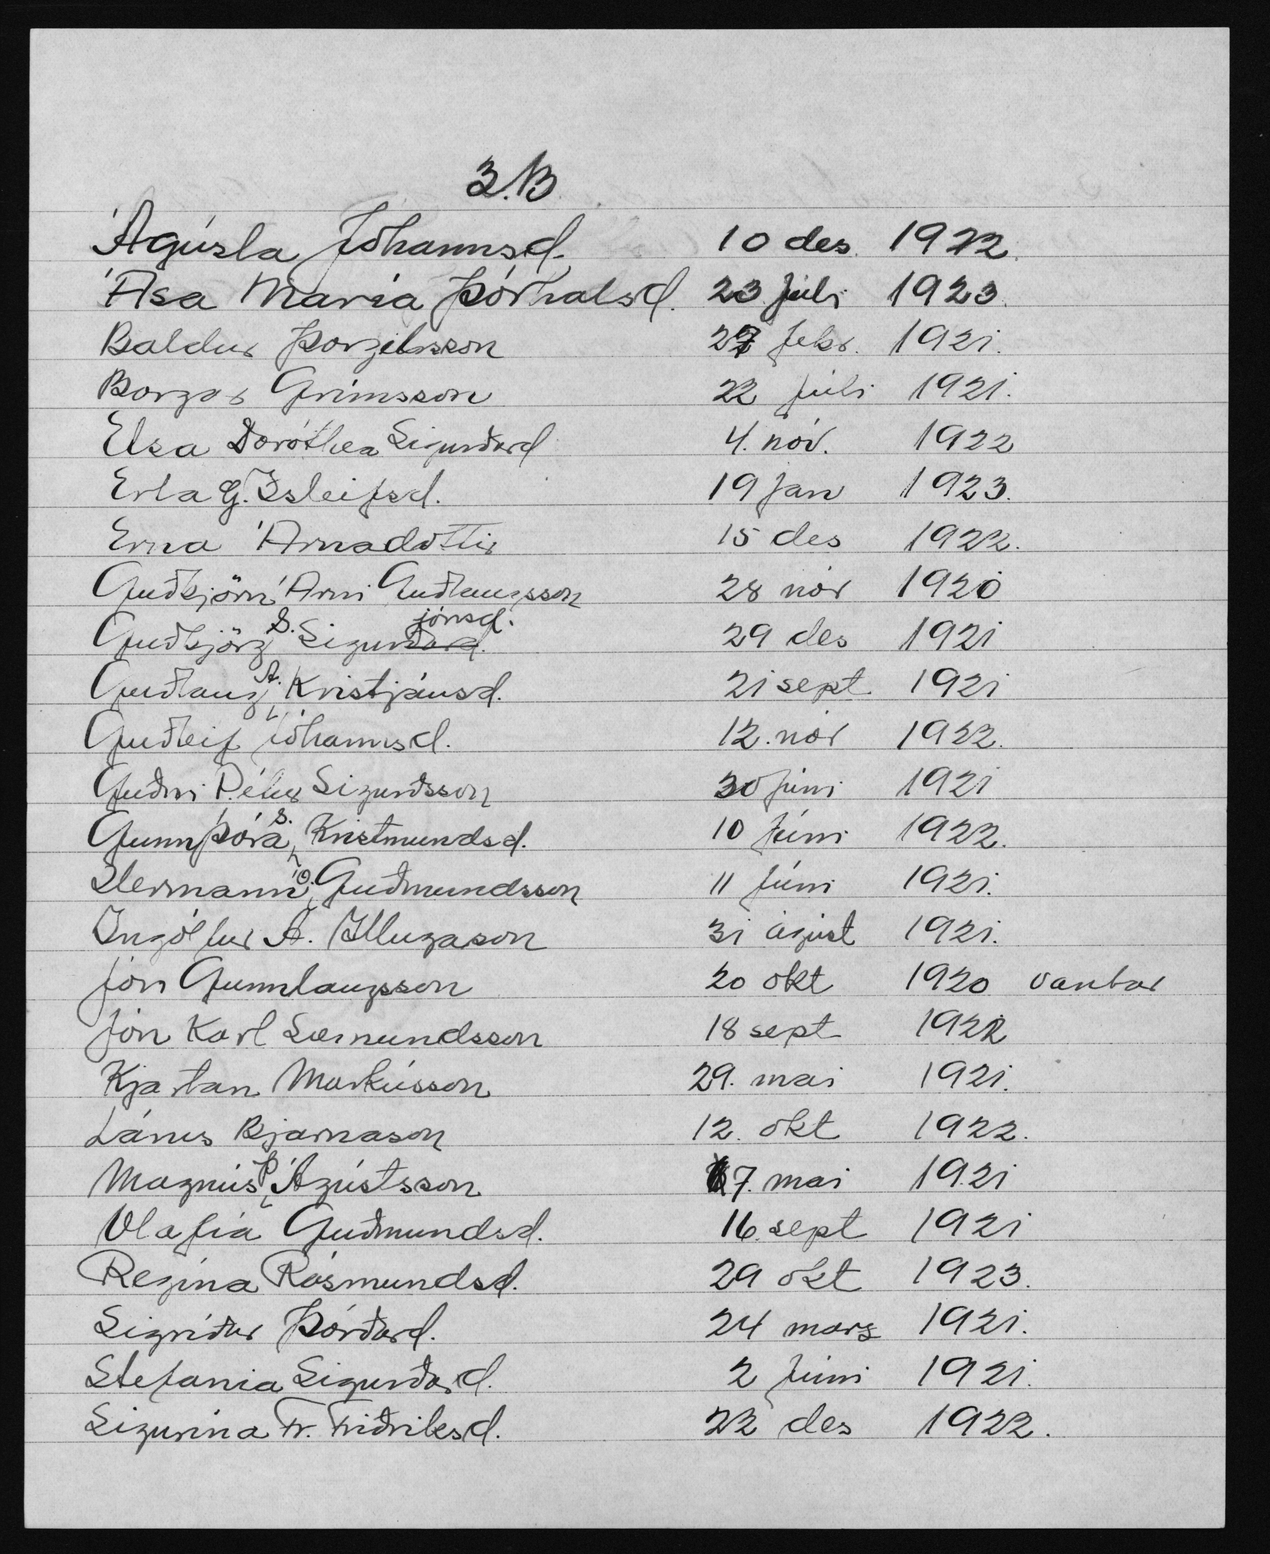 3.B
Ágústa Jóhannsd. 10 des. 1922.
Ása María Þórhalsd. 23 júlí 1923.
Baldur Þorgilsson 27 febr. 1921.
Borgar Grímsson 22 júlí 1921.
Elsa Doróthea Sigurðard 4. nóv. 1922
Erla G. Ísleifsd. 19 jan 1923.
Erna Árnadóttir 15 des 1922.
Guðbjörn Árni Guðlaugsson 28 nóv 1920
Guðbjörg S. Sigurjónsd. 29 des 1921
Guðlaug A. Kristjánsd. 21 sept 1921
Guðleif Jóhannsd. 12. nóv 1922.
Guðni Pétur Sigurðsson 30 júní 1921
Gunnþóra S. Kristmundsd. 10 júní 1922.
Hermann O. Guðmundsson 11 júní 1921.
Ingólfur A. Illugason 31 ágúst 1921.
Jón Gunnlaugsson 20 okt 1920 vantar
Jón Karl Sæmundsson 18 sept 1922
Kjartan Markússon 29. maí 1921.
Lárus Bjarnason 12. okt 1922.
Magnús P. Ágústsson 7. maí 1921
Ólafía Guðmundsd. 16. sept 1921
Regína Rósmundsd. 29 okt 1923.
Sigríður Þórðard. 24 mars 1921.
Stefanía Sigurðard. 2 júní 1921.
Sigurína Fr. Friðriksd. 22 des 1922.